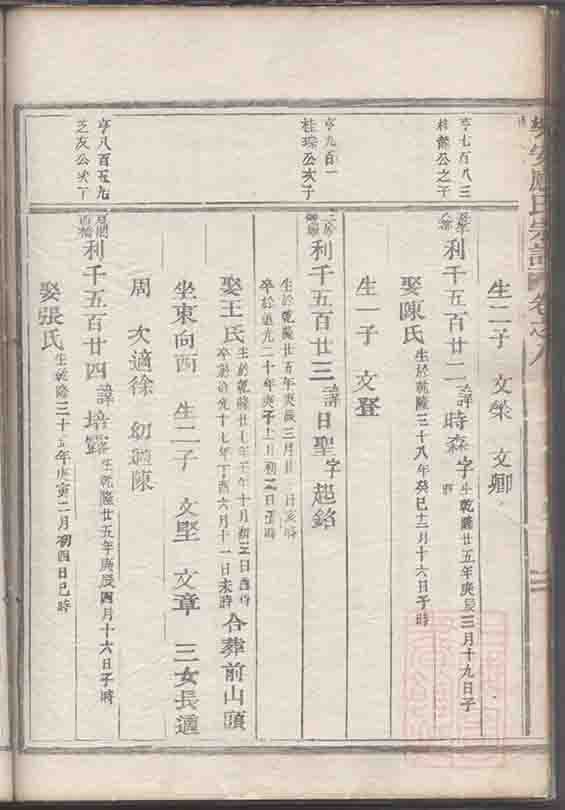 氏宗譜 卷之八
亨七百八三
桂 公之子
亨九百一
桂瑞公次子
亨八百五九
芝友公次子
生二子 文榮 文卿
利千五百廿二 諱時森 字 生乾隆廿五年庚辰三月十九日子時
娶陳氏 生於乾隆三十八年癸巳十二月十六日子時
生一子 文登
利千五百廿三 諱日聖 字超銘
生於乾隆廿五年庚辰三月廿 日亥時
卒於道光二十年庚子 月初 日 時
娶王氏 生於乾隆廿七年壬午十月初三日酉時
卒於道光十七年丁酉六月十一日未時 合葬前山頭
坐東向西 生二子 文堅 文章 三女長適
周 次適徐 幼適陳
利千五百廿四 諱培露 生乾隆廿五年庚辰四月十六日子時
娶張氏 生乾隆三十五年庚寅二月初四日巳時